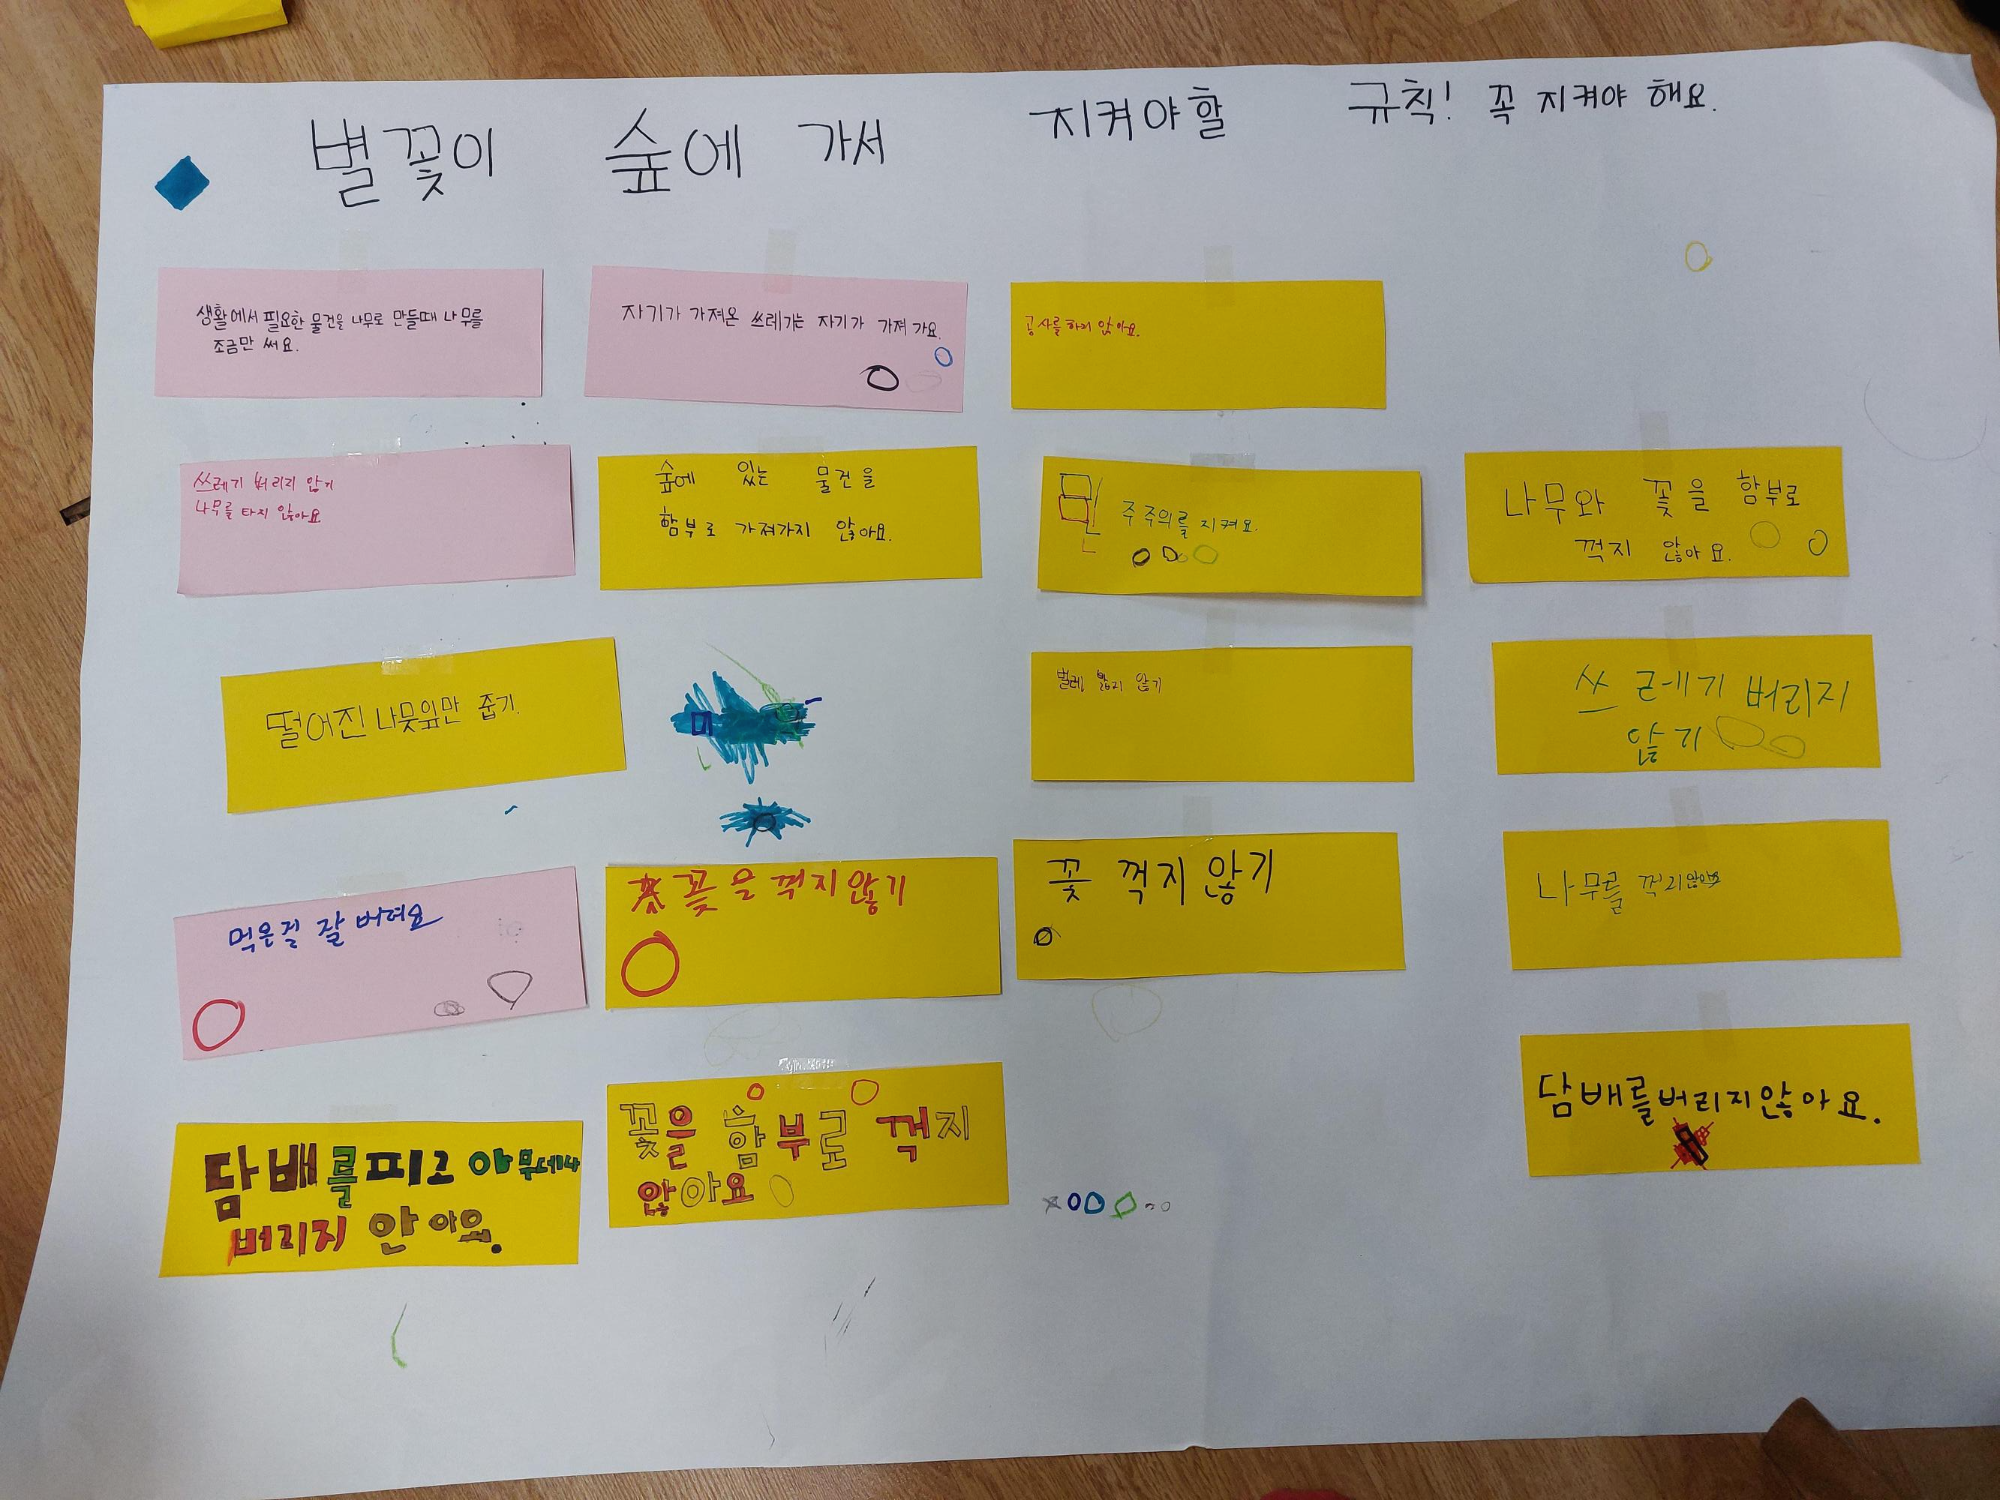 별꽃이 숲에 가서 지켜야할 규칙! 꼭 지켜야 해요.
생활에서 필요한 물건을 나무로 만들때 나무를
조금만 써요.
자기가 가져온 쓰레기는 자기가 가져 가요.
공사를 하지 않아요.
쓰레기 버리지 않기
나무를 타지 않아요
숲에 있는 물건을
함부로 가져가지 않아요.
주주의를 지켜요.
나무와 꽃을 함부로
꺽지 않아요.
떨어진 나뭇잎만 줍기.
벌레 밟지 않기
쓰레기 버리지
않기
먹은걸 잘 버려요
꽃을 꺽지 않기
꽃 꺽지 않기
나무를 꺽지않아요
담배를 피고 아무데나
버리지 안아요.
꽃을 함부로 꺽지
않아요
담배를버리지않아요.